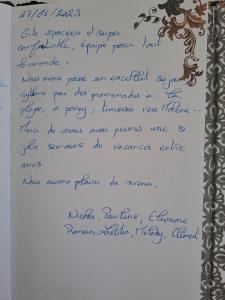 27/08/2023
Gîte spacieux et super
confortable, équipé pour tout
le monde.
Nous avons passé un excellent séjour
rythmé par des promenades à la
plage, à poney, traversée vers Molène...
Merci de nous avoir permis une si
jolie semaine de vacances entre
amis.
Nous aurons plaisir de revenir.
Nicolas, Pauline, Eleonore
Romain, Laetitia, Melody, Clément